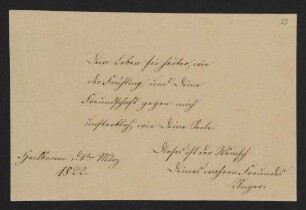 23
Dein Leben sei heiter, wie
der Frühling, und Deine
Freundschaft gegen mich
unsterblich, wie Deine Seele.
Dieses ist der Wunsch
Heilbronn d. März
1822.
Deines wahren Freundes
Unger.